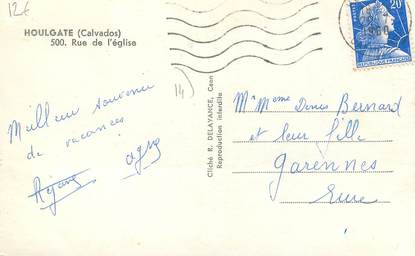 12€
HOULGATE (Calvados)
500. Rue de l'église
14)
Meilleur souvenir
de vacances
Cliché R. DELAYANCE, Caen
Reproduction interdite
20F
1960
REPUBLIQUE FRANÇAISE
Mr Mme Denis Bernard
et leur fille
Garennes
Eure